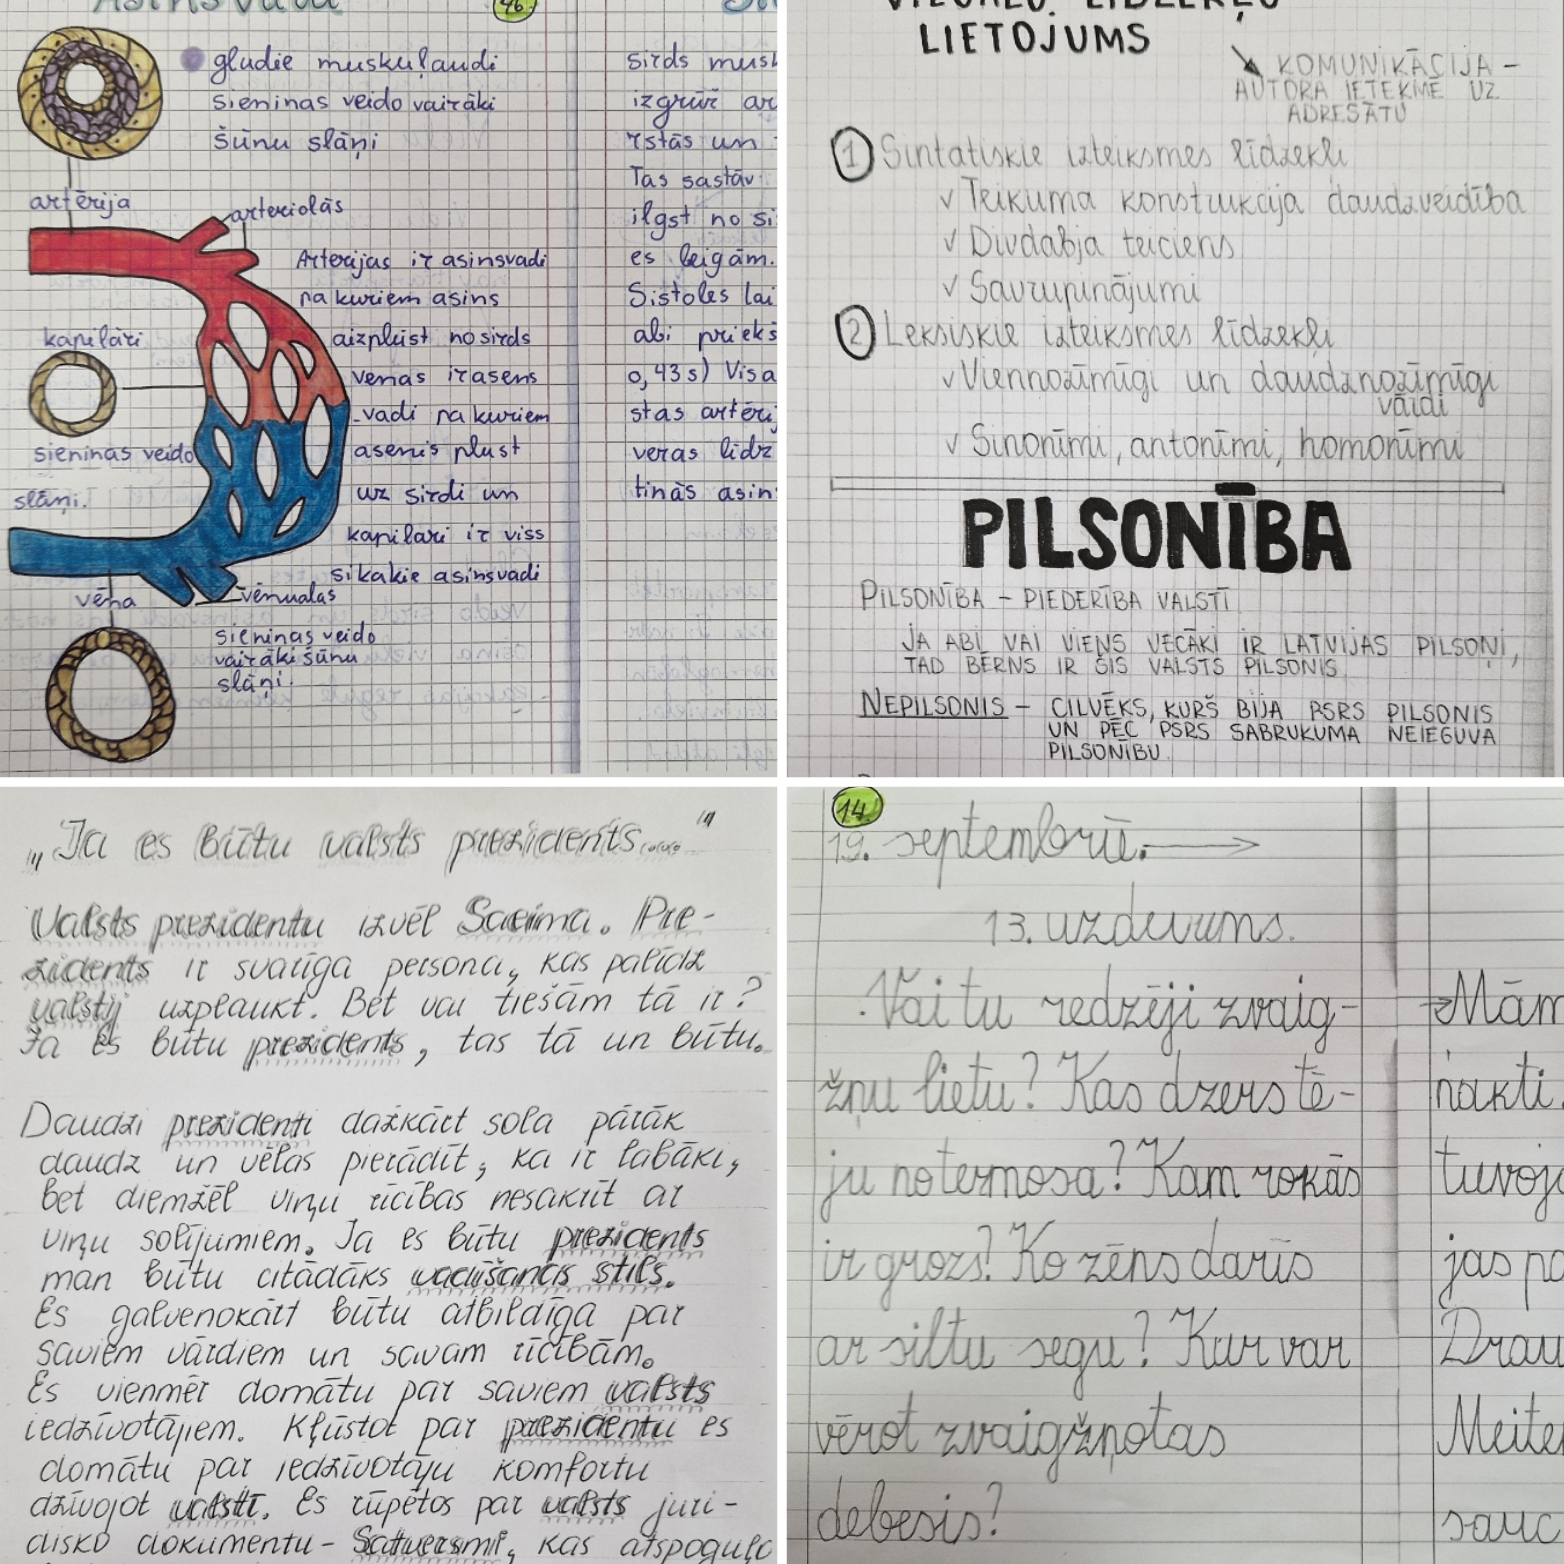 Asinsvadi
46
gludie muskuļaudi
sieniņas veido vairāki
šūnu slāņi
artērija
arteriolās
Artērijas ir asinsvadi
pa kuriem asins
kapilāri
aizplūst no sirds
venas ir asens
vadi pa kuriem
sieniņas veido
asenis plust
slāņi.
uz sirdi un
kapilari ir viss
sikakie asinsvadi
vēna
vēnualas
sieniņas veido
vairāki šūnu
slāņi.
sirds musk
izgrūž ar
rstās un
Tas sastāv
ilgst no si
es beigām.
Sistoles lai
abi priekš
0,43s) Visa
stas artērij
veras līdz
tinās asin
LIDZEKĻU
LIETOJUMS
KOMUNIKĀCIJA –
AUTORA IETEKME UZ
ADRESĀTU
1 Sintatiskie izteiksmes līdzekļi
✓ Teikuma konstrukcija daudzveidība
✓ Divdabja teiciens
✓ Savrupinājumi
2 Leksiskie izteiksmes līdzekļi
✓ Viennozīmīgi un daudznozīmīgi
vārdi
✓ Sinonīmi, antonīmi, homonīmi
PILSONĪBA
PILSONĪBA – PIEDERĪBA VALSTĪ
JA ABI VAI VIENS VECĀKI IR LATVIJAS PILSOŅI,
TAD BĒRNS IR ŠĪS VALSTS PILSONIS
NEPILSONIS – CILVĒKS, KURŠ BIJA PSRS PILSONIS
UN PĒC PSRS SABRUKUMA NEIEGUVA
PILSONĪBU.
„Ja es būtu valsts prezidents....."
Valsts prezidentu izvēl Saeima. Pre-
zidents ir svarīga persona, kas palīdz
valstij uzplaukt. Bet vai tiešām tā ir?
Ja es būtu prezidents, tas tā un būtu.
Daudzi prezidenti dažkārt sola pārāk
daudz un vēlas pierādīt, ka ir labāki,
bet diemžēl viņu rīcības nesakrīt ar
viņu solījumiem. Ja es būtu prezidents
man būtu citādāks vadīšanas stils.
Es galvenokārt būtu atbildīga par
saviem vārdiem un savām rīcībām.
Es vienmēr domātu par saviem valsts
iedzīvotājiem. Kļūstot par prezidentu es
domātu par iedzīvotāju komfortu
dzīvojot valstī. Es rūpētos par valsts juri-
disko dokumentu – Satversmi, kas atspoguļo
14.
19. septembrī.
13. uzdevums.
Vai tu redzēji zvaig-
žņu lietu? Kas dzers tē-
ju no termosa? Kam rokās
ir grozs? Ko zēns darīs
ar siltu segu? Kur var
vērot zvaigžņotas
debesis?
Mām
nakti.
tuvoj
jas pa
Drau
Meite
sauc